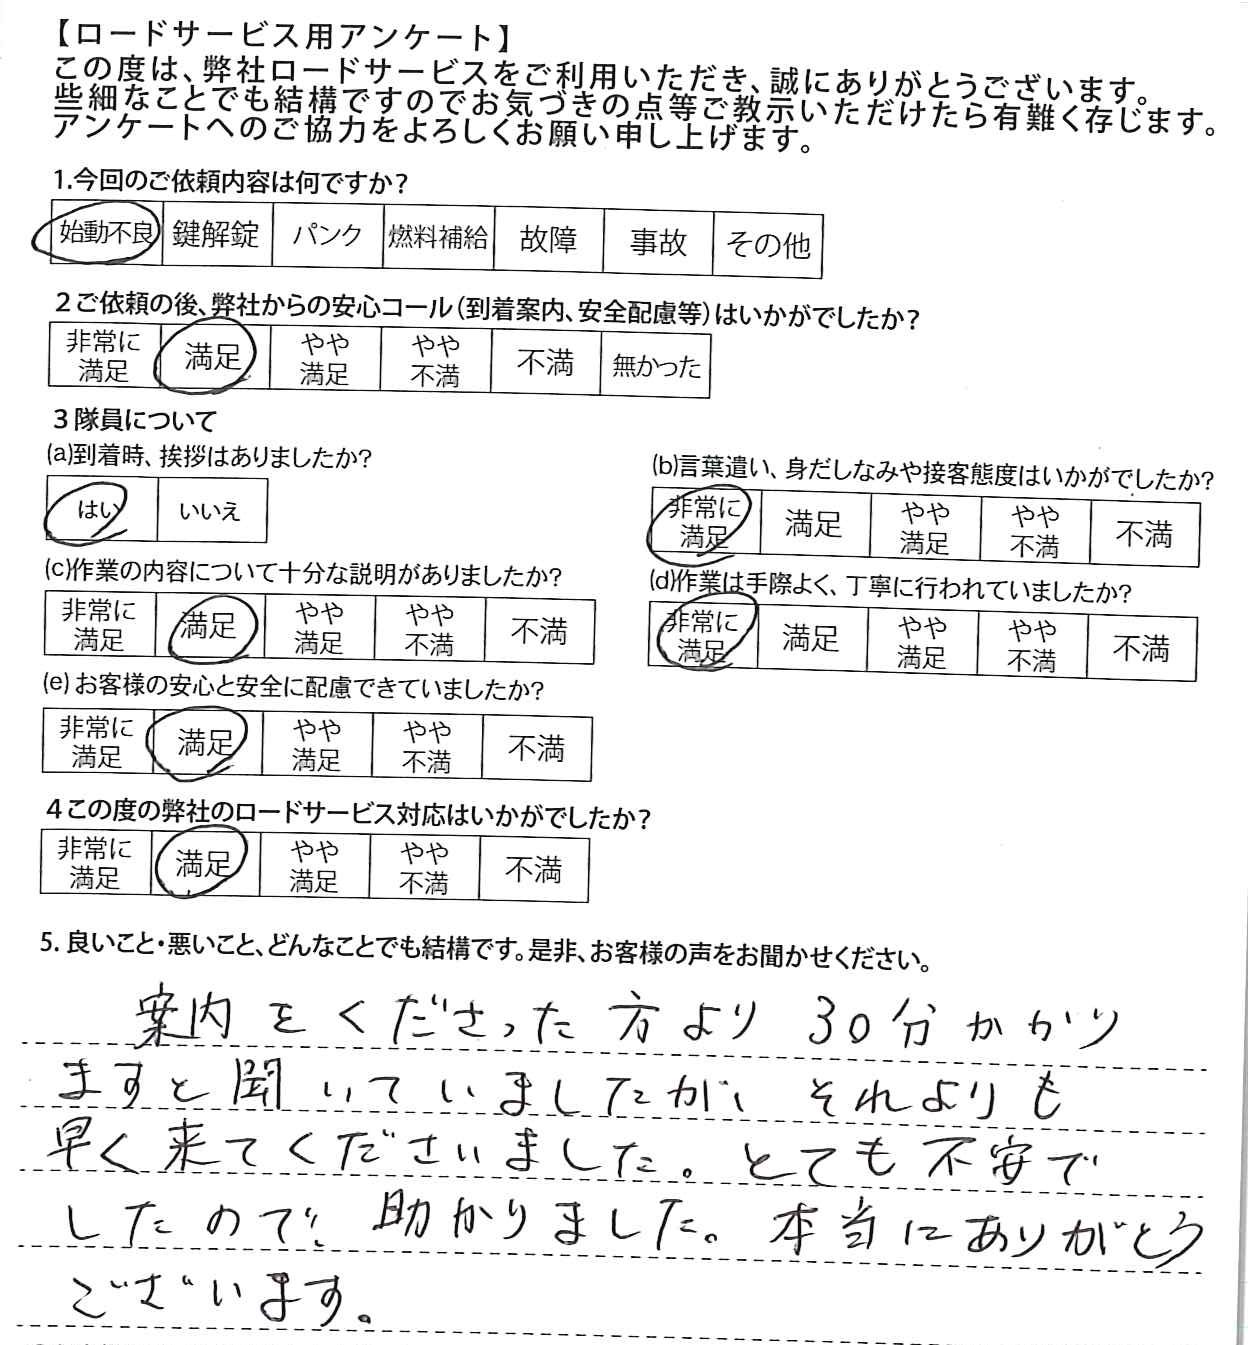 【ロードサービス用アンケート】
この度は、弊社ロードサービスをご利用いただき、誠にありがとうございます。
些細なことでも結構ですのでお気づきの点等ご教示いただけたら有難く存じます。
アンケートへのご協力をよろしくお願い申し上げます。
1.今回のご依頼内容は何ですか?
始動不良 鍵解錠 パンク 燃料補給 故障 事故 その他
2ご依頼の後、弊社からの安心コール(到着案内、安全配慮等)はいかがでしたか?
非常に満足 満足 やや満足 やや不満 不満 無かった
3隊員について
(a)到着時、挨拶はありましたか?
はい いいえ
(b)言葉遣い、身だしなみや接客態度はいかがでしたか?
非常に満足 満足 やや満足 やや不満 不満
(c)作業の内容について十分な説明がありましたか?
非常に満足 満足 やや満足 やや不満 不満
(d)作業は手際よく、丁寧に行われていましたか?
非常に満足 満足 やや満足 やや不満 不満
(e)お客様の安心と安全に配慮できていましたか?
非常に満足 満足 やや満足 やや不満 不満
4この度の弊社のロードサービス対応はいかがでしたか?
非常に満足 満足 やや満足 やや不満 不満
5. 良いこと・悪いこと、どんなことでも結構です。是非、お客様の声をお聞かせください。
案内をくださった方より30分かかり
ますと聞いていましたが、それよりも
早く来てくださいました。とても不安で
したので、助かりました。本当にありがとう
ございます。